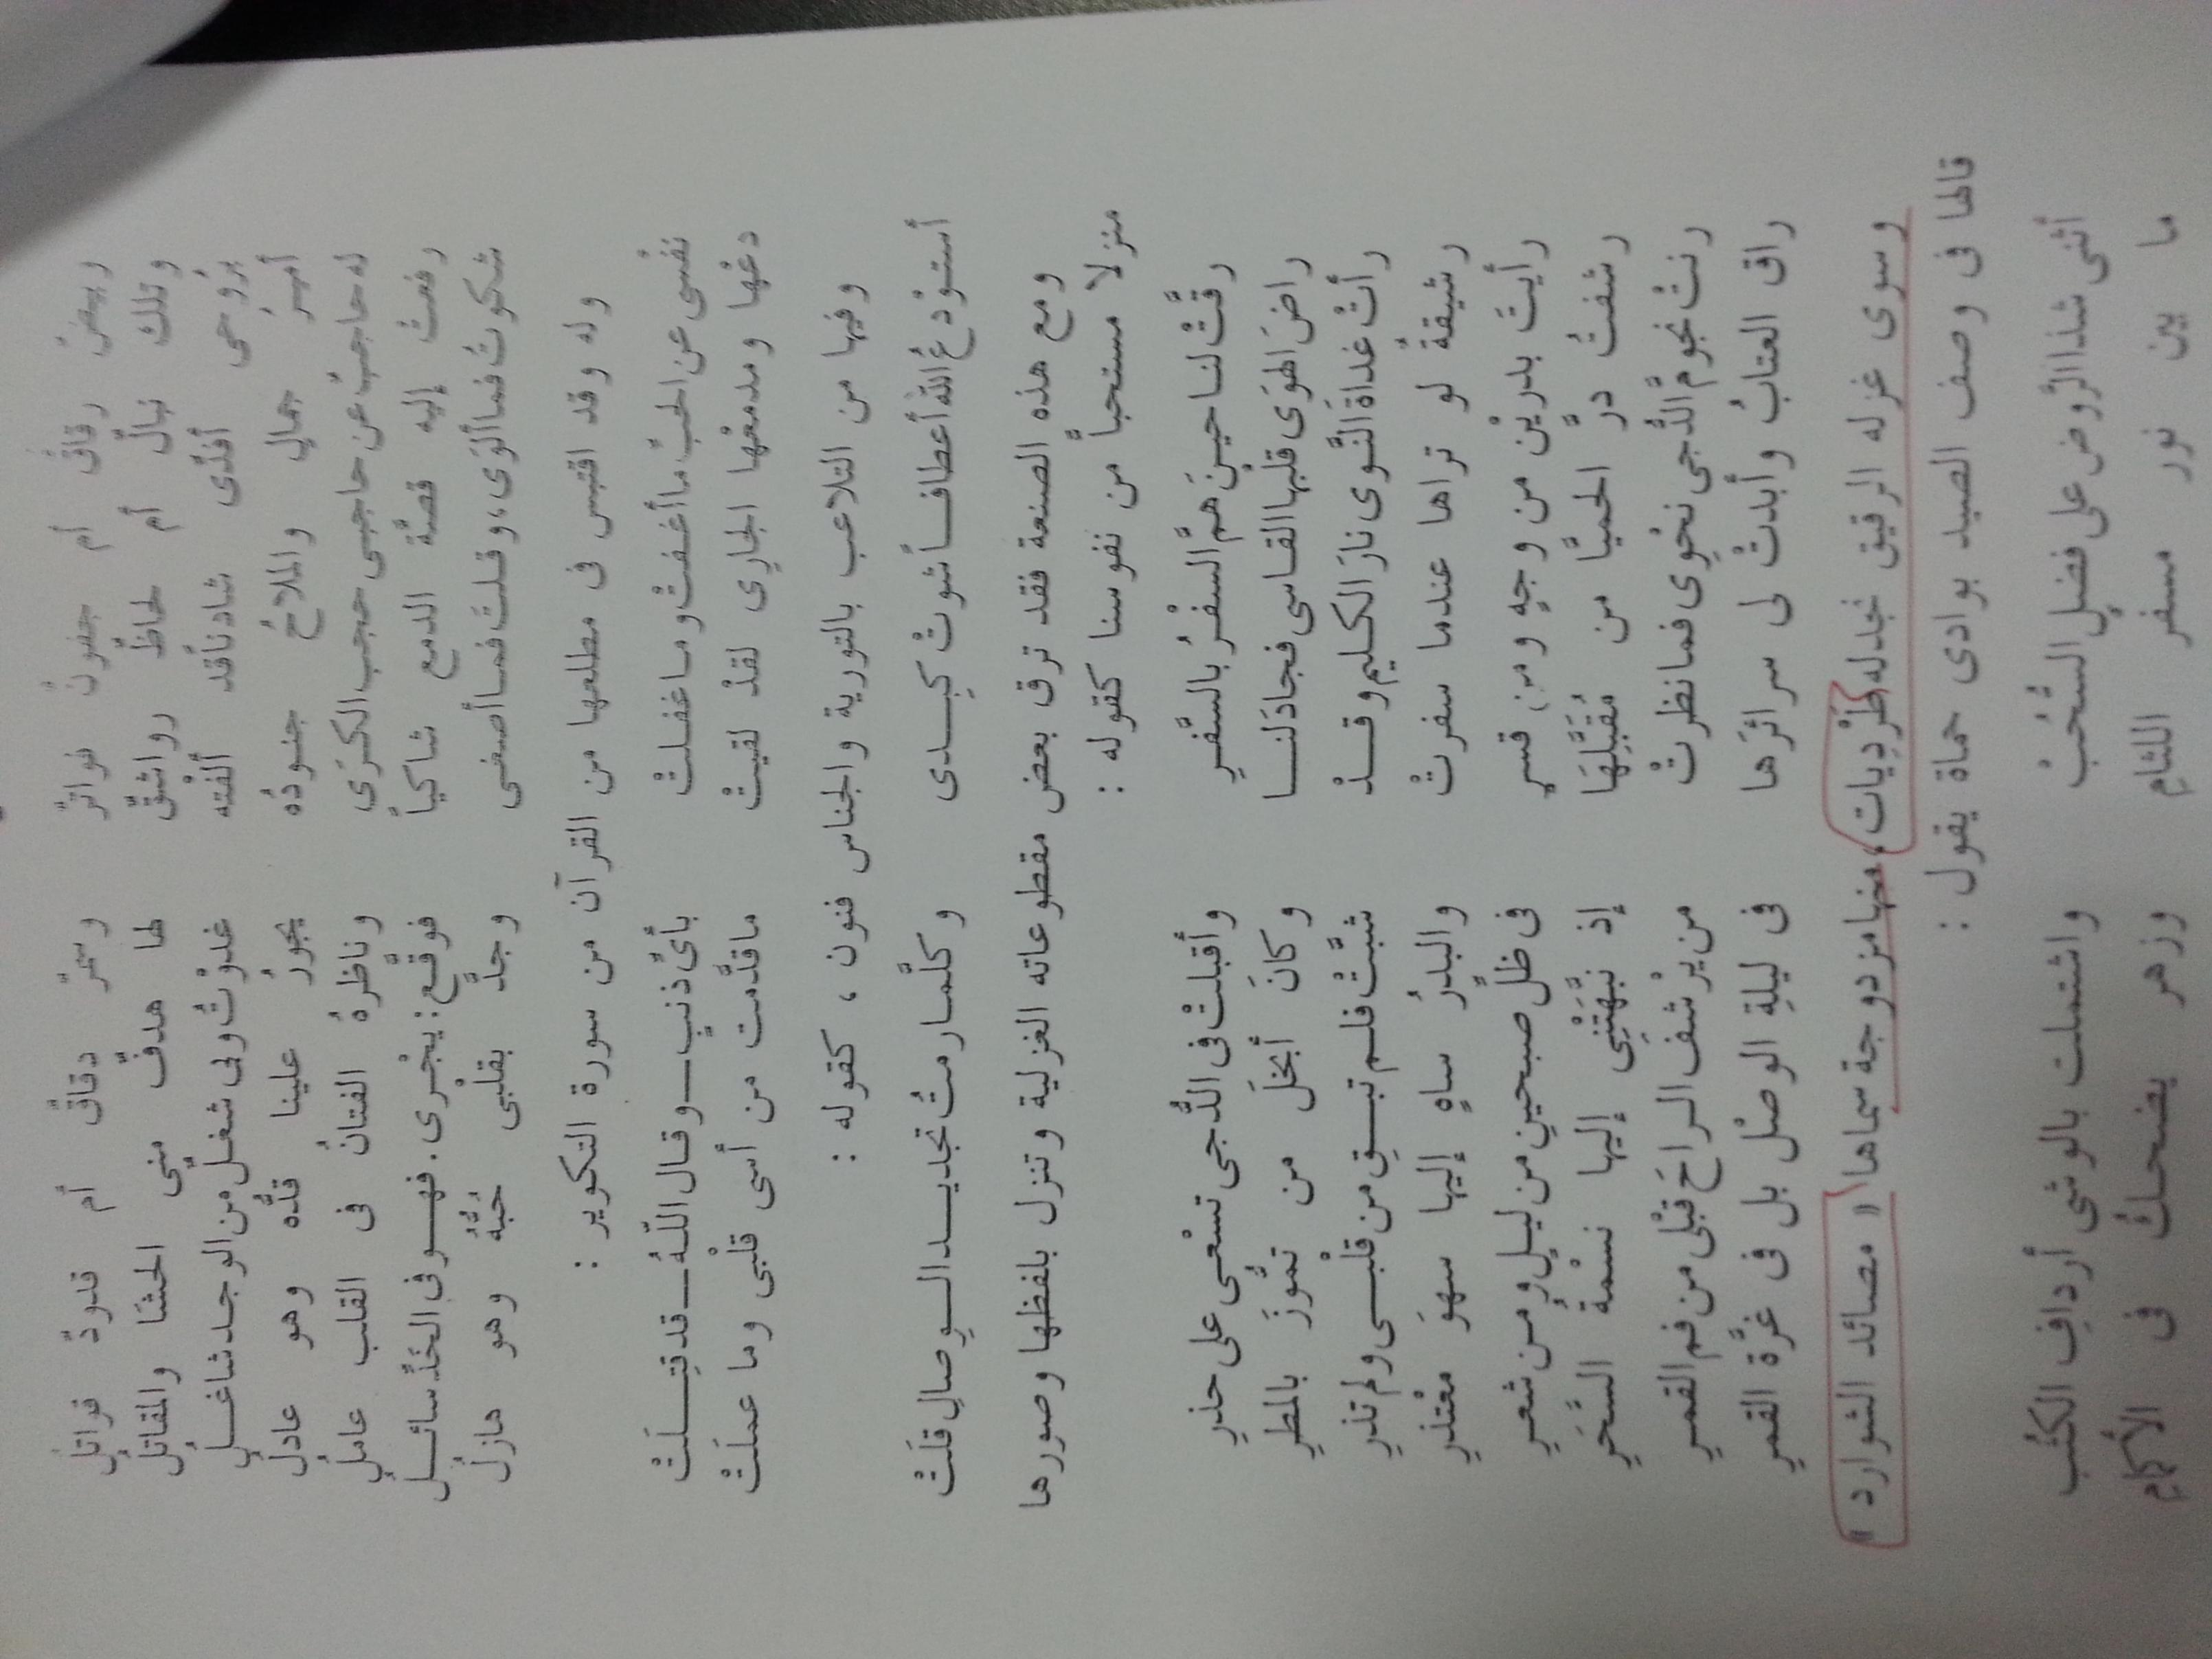 وبيضٌ رقاقٌ أم جفونٌ فواترٌ وسمرٌ دقاقٌ أم قدودٌ قواتلِ
وتلك نبالٌ أم لحاظٌ رواشقٌ لها هدفٌ منى الحشا والمقاتلِ
بروحى أفدّى شادنا قد ألفْته غدوْتُ وبى شغلٌ من الوجد شاغلِ
أميرُ جمالٍ والملاحُ جنودُه يجورُ علينا قدُّه وهو عادلِ
له حاجبٌ عن حاجبى حجب الكرَى وناظرهُ الفتانُ فى القلب عاملِ
رفعتُ إليه قصّة الدمع شاكياً فوقّع: يجْرى. فهو فى الخَدّ سائلِ
شكوتُ فما ألوَى، وقلتُ فما أصغى وجدَّ بقلبى حُبُّهُ وهو هازلِ
وله وقد اقتبس فى مطلعها من القرآن من سورة التكوير :
نفْسى عن الحبّ ما أغفتْ وما غفلتْ بأىّ ذنبٍ – وقال اللّهُ – قد قتلَتْ
دعْها ومدمعْها الجارِى لقدْ لقيتْ ما قدّمت من أسى قلْبى وما عملَتْ
وفيها من التلاعب بالتورية والجناس فنون ، كقوله :
أستوْدعُ اللهَ أعطافاً شوتْ كبدى وكلّما رمتُ تجديد الوصالِ قلَتْ
ومع هذه الصنعة فقد ترق بعض مقطوعاته الغزلية وتنزل بلفظها وصورها
منزلا مستحباًّ من نفوسنا كقوله :
رقَّتْ لنا حينَ همَّ السفْرُ بالسَّفرِ وأقبلتْ فى الدُّجى تسْعى على حذرِ
راضَ الهوَى قلبَها القاسى فجادَلنا وكانَ أبخلَ من تمُّوزَ بالمطرِ
رأتْ غداةَ النَّوى نارَ الكليمِ وقدْ شبَّتْ فلم تبقِ من قلْبى ولم تذرِ
رشيقةٌ لو تراها عندما سفرتْ والبدرُ ساهٍ إليها سهوَ معْتذرِ
رأيتَ بدريْن من وجهٍ ومن قمرٍ فى ظلّ صبحينِ من ليلٍ ومن شعرِ
رشفتُ درَّ الحميَّا من مُقَبِّلِهَا إذ نبَّهَتْنِى إليها نسْمة السَّحَرِ
رنتْ نجومَّ الدُّجى نحْوِى فما نظرتْ من يرْشف الراحَ قبْلى من فم القمرِ
راق العتابُ وأبدتْ لى سرائرَها فى ليلةِ الوصْل بل فى غرَّة القمرِ
وسوى غزله الرقيق نجد له طَرْدِيات، منها مزدوجة سماها « مصائد الشوارد »
قالها فى وصف الصيد بوادى حماة يقول :
أثنى شذا الرَّوض على فضلِ السُّحُبْ واشتملت بالوشى أردافِ الكثُبْ
ما بين نور مسفر اللثامِ وزهر يضحكُ فى الأكمامِ